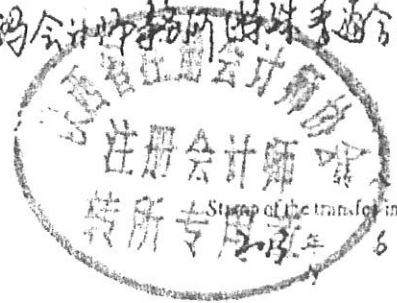 会计师事务所(特殊普通合
江西省注册会计师协会
注册会计师
转所专用章
Stamp of the transfer-in
2013年 6